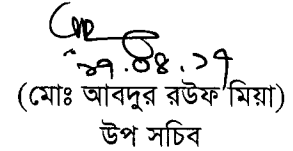 ২৭.০৪.১৭
(মোঃ আবদুর রউফ মিয়া)
উপ সচিব